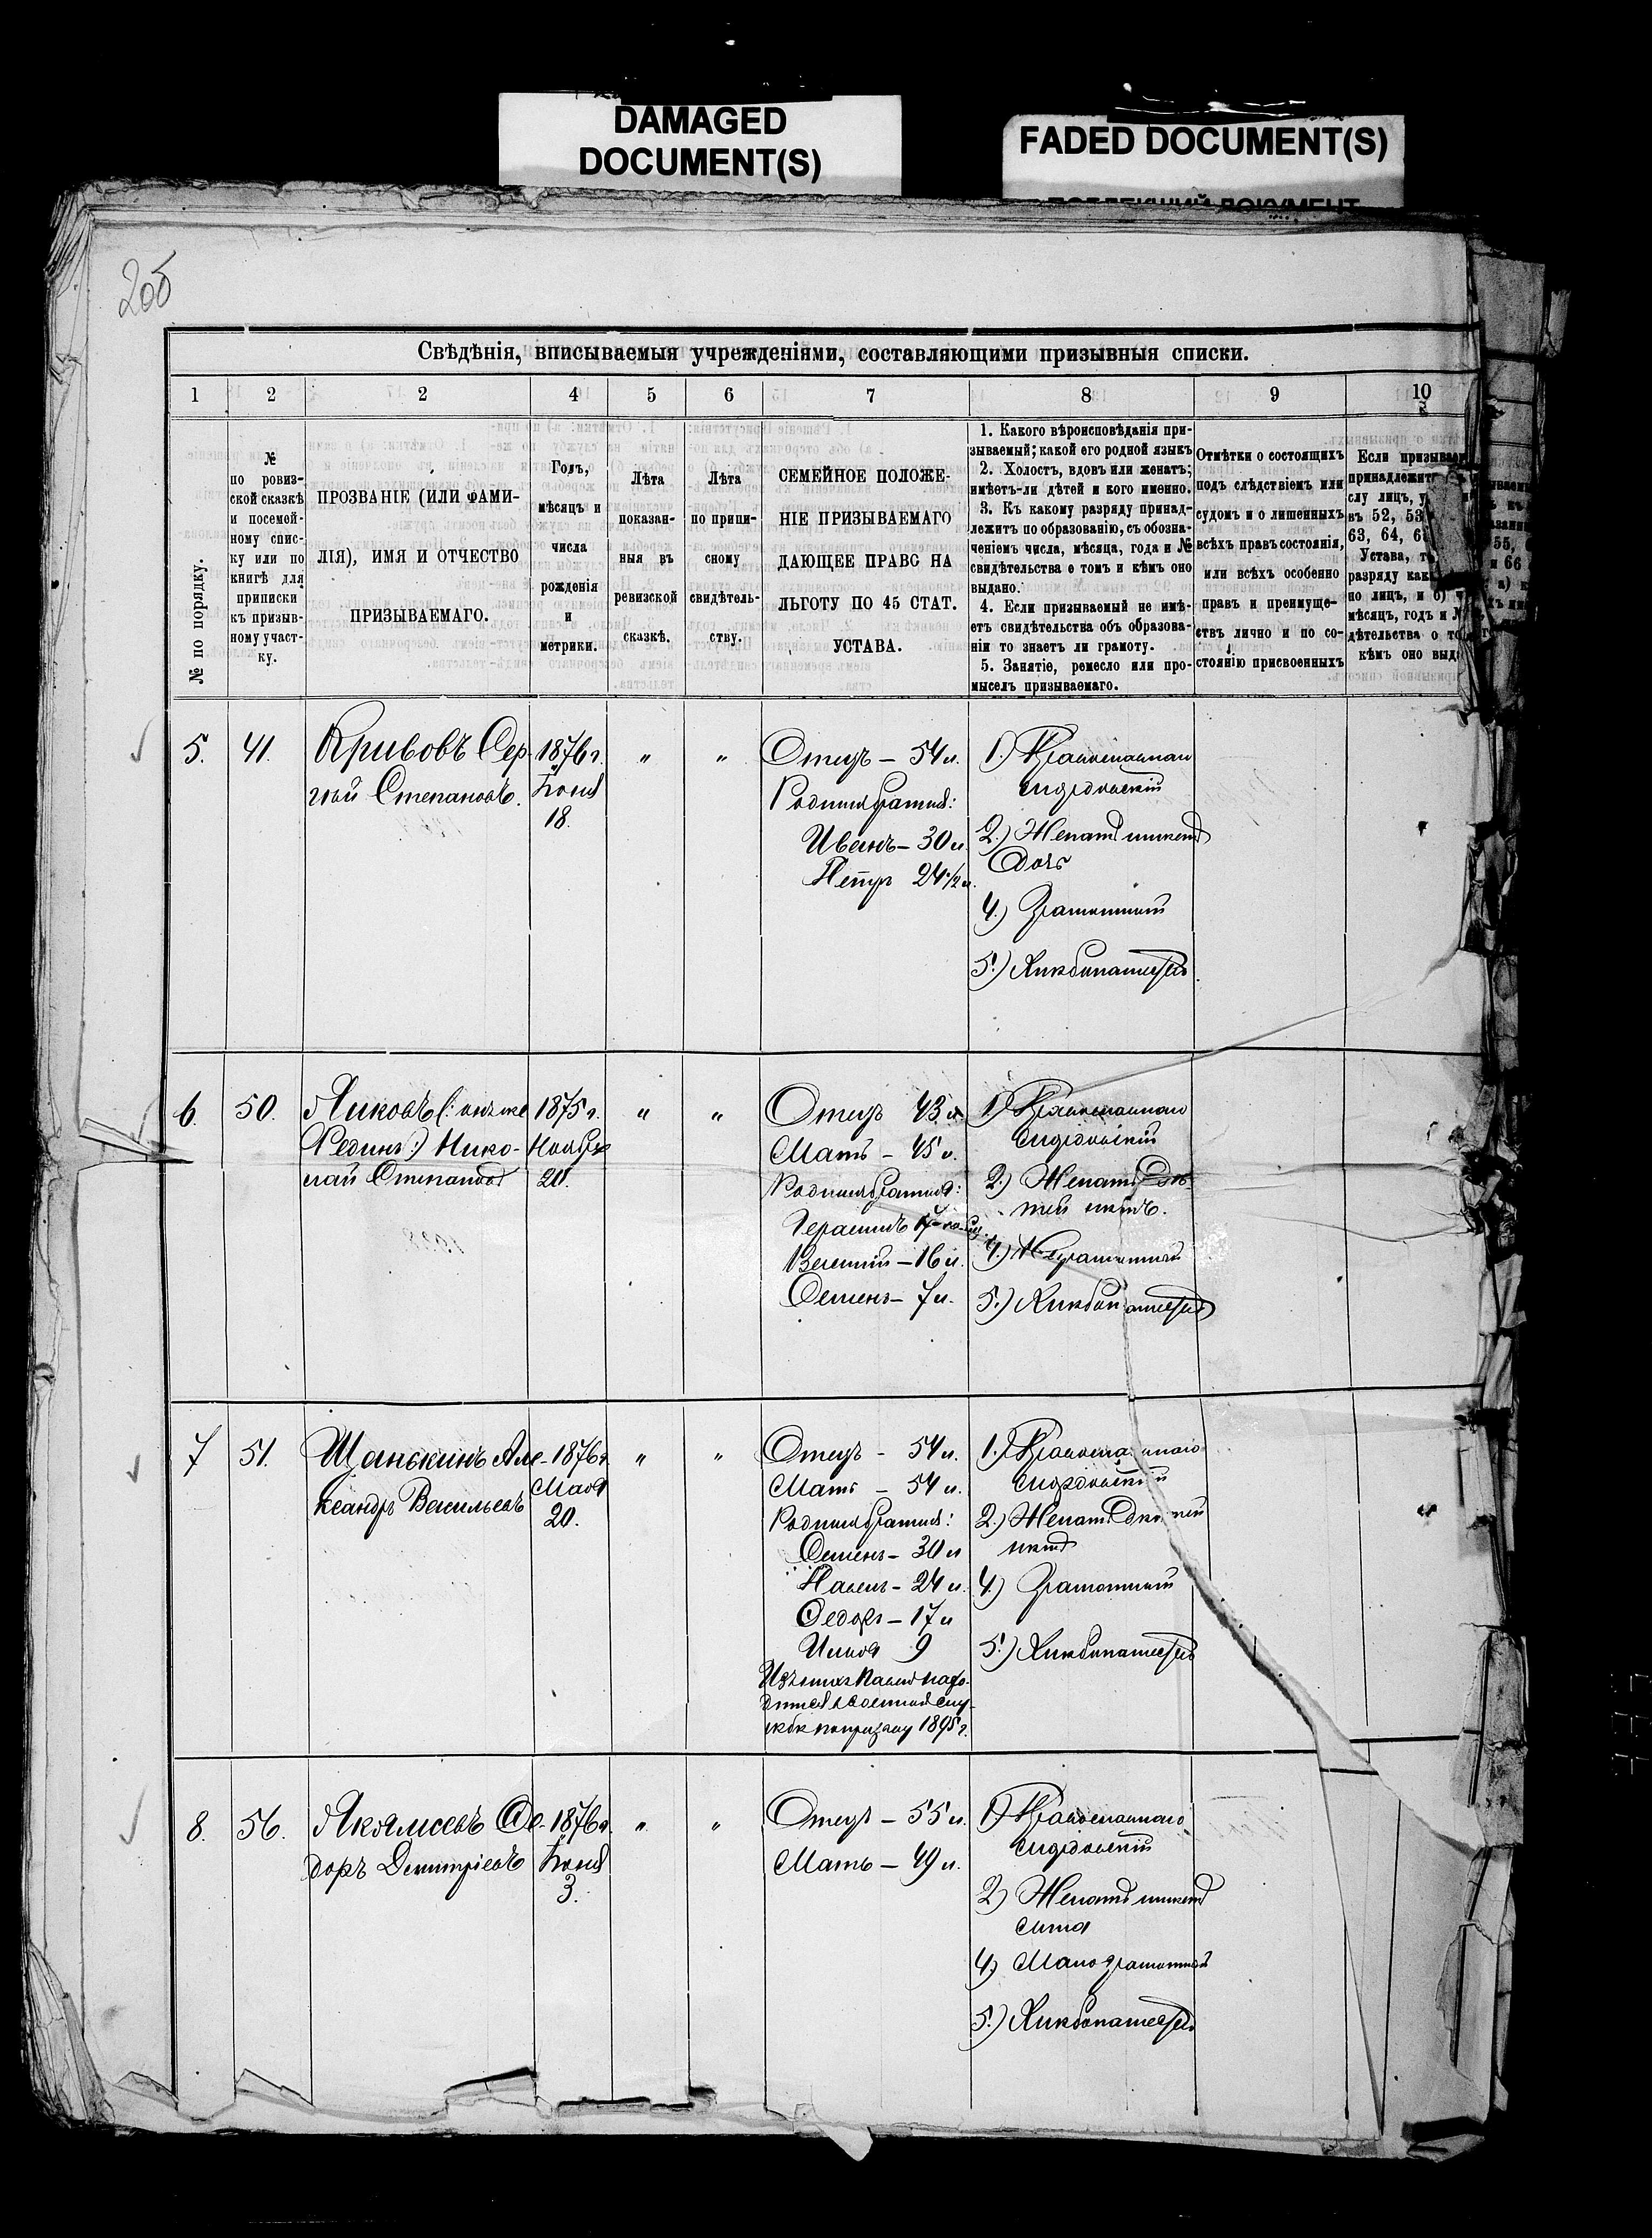 DAMAGED
DOCUMENT(S)
FADED DOCUMENT(S)
Свѣдѣнія, вписываемыя учрежденіями, составляющими призывныя списки.
1 2 2 4 5 6 7 8 9 10
№ по порядку.
№
по ровиз-
ской сказкѣ
и посемей-
ному спис-
ку или по
книгѣ для
приписки
къ призыв-
ному участ-
ку.
ПРОЗВАНІЕ (ИЛИ ФАМИ-
ЛІЯ), ИМЯ И ОТЧЕСТВО
ПРИЗЫВАЕМАГО.
Годъ,
мѣсяцъ и
числа
рожденія
и
метрики.
Лѣта
показан-
ныя въ
ревизской
сказкѣ.
Лѣта
по припи-
сному
свидѣтель-
ству.
СЕМЕЙНОЕ ПОЛОЖЕ-
НІЕ ПРИЗЫВАЕМАГО
ДАЮЩЕЕ ПРАВО НА
ЛЬГОТУ ПО 45 СТАТ.
УСТАВА.
1. Какого вѣроисповѣданія при-
зываемый; какой его родной языкъ
2. Холостъ, вдовъ или женатъ;
имѣетъ-ли дѣтей и кого именно.
3. Къ какому разряду принад-
лежитъ по образованію, съ обозна-
ченіемъ числа, мѣсяца, года и №
свидѣтельства о томъ и кѣмъ оно
выдано.
4. Если призываемый не имѣ-
етъ свидѣтельства объ образова-
ніи то знаетъ ли грамоту.
5. Занятіе, ремесло или про-
мыселъ призываемаго.
Отмѣтки о состоящихъ
подъ слѣдствіемъ или
судомъ и о лишенныхъ
всѣхъ правъ состоянія,
или всѣхъ особенно
правъ и преимуще-
ствъ лично и по со-
стоянію присвоенныхъ
Если призывае
принадлежит
слу лицъ, у
въ 52, 53
63, 64, 6
Устава, т
разряду как
но лицъ, и б)
мѣсяцъ, годъ и №
дѣтельства о то
кѣмъ оно выд
5. 41. Кривовъ Сер-
гѣй Степановъ.
1876 г.
Іюня
18.
" "
Отецъ – 54 л.
Родныя братья:
Иванъ – 30 л.
Петръ 24½ л.
1.) Православнаго
мордовскій
2.) Женатъ имѣетъ
дочь
4.) Грамотный
5.) Хлѣбопашецъ
6. 50. Ликовъ (: онъ же
Рединъ:) Нико-
лай Степановъ
1875 г.
Ноября
20.
" "
Отецъ 43 л.
Мать – 45 л.
Родныя братья:
Герасимъ
Василій – 16 л.
Семенъ – 7 л.
1.) Православнаго
мордовскій
2.) Женатъ дѣ-
тей нѣтъ.
4.) Неграмотный
5.) Хлѣбопашецъ
7 51. Щанькинъ Але-
ксандръ Васильевъ
1876 г.
Мая
20.
" "
Отецъ – 54 л.
Мать – 54 л.
Родныя братья:
Семенъ – 30 л
Павелъ – 24 л.
Федоръ – 17 л
Илья 9
Изъ нихъ Павелъ нахо-
дится въ военной слу-
жбѣ по призыву 1895 г.
1.) Православнаго
мордовскій
2.) Женатъ дѣтей
нѣтъ
4.) Грамотный
5.) Хлѣбопашецъ
8. 56. Ѳе-
доръ Дмитріевъ
1876 г.
Іюня
3.
" "
Отецъ – 55 л.
Мать – 49 л.
1) Православнаго
мордовскій
2) Женатъ имѣетъ
сына
4) Малограмотный
5.) Хлѣбопашецъ